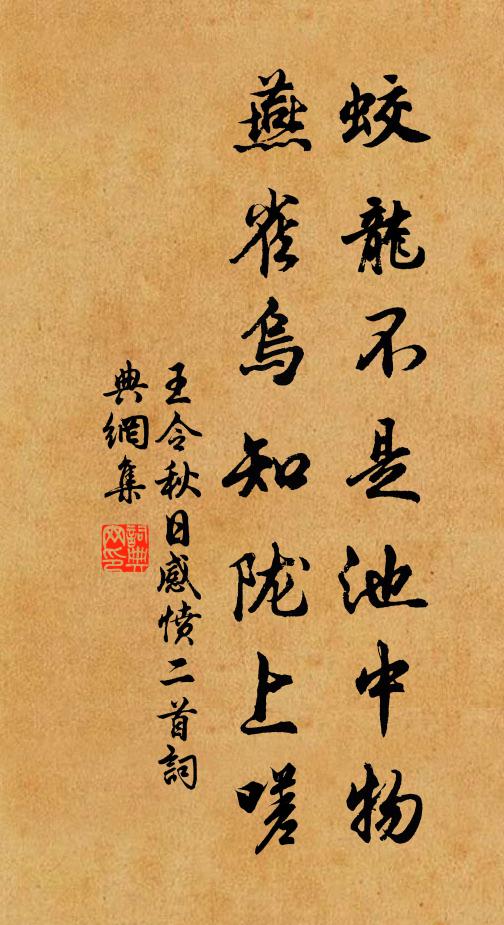 蛟龍不是池中物
燕雀烏知陇上嗟
王令秋日感憤二首詞
典網集
詞典
网印